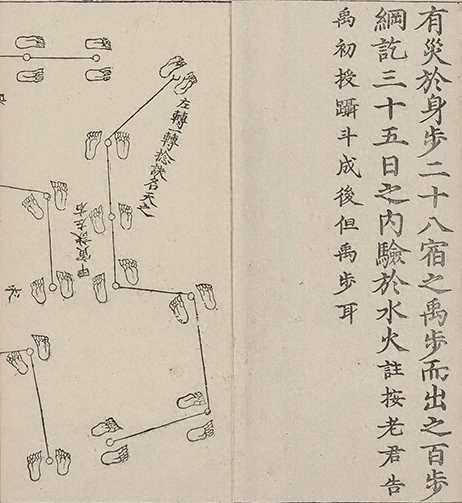 有災於身步二十八宿之禹步而出之百步
綱訖三十五日之內驗於水火註按老君告
禹初授躡斗成後但禹步耳
左轉一轉捻訣各天之
左右